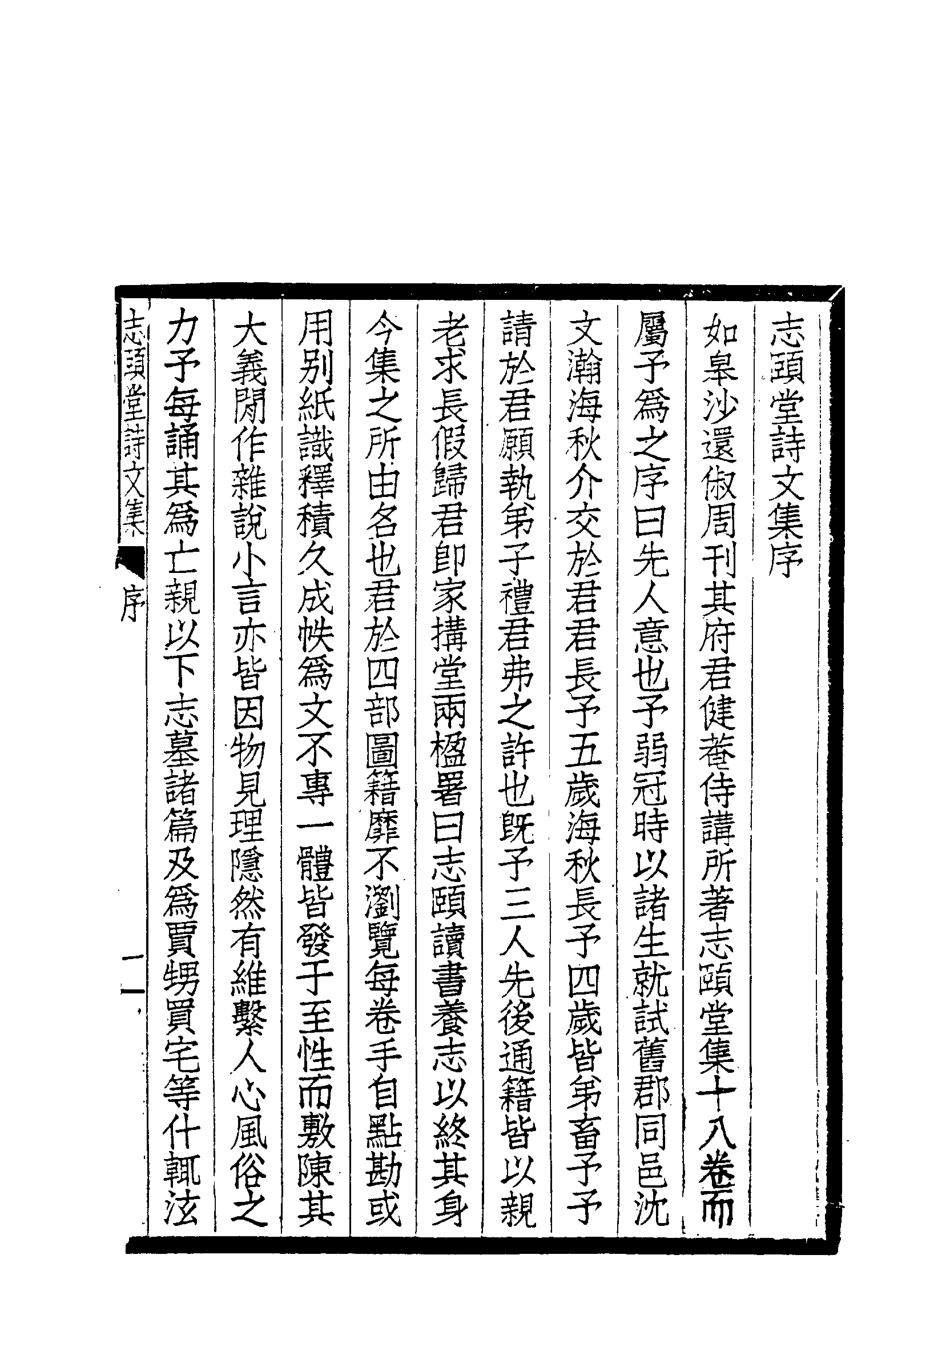 志頤堂詩文集序
如皋沙還俶周刊其府君健菴侍講所著志頤堂集十八卷而
屬予爲之序曰先人意也予弱冠時以諸生就試舊郡同邑沈
文瀚海秋介交於君君長予五歲海秋長予四歲皆弟畜予予
請於君願執弟子禮君弗之許也既予三人先後通籍皆以親
老求長假歸君卽家搆堂兩楹署曰志頤讀書養志以終其身
今集之所由名也君於四部圖籍靡不瀏覽每卷手自點勘或
用別紙識釋積久成帙爲文不專一體皆發于至性而敷陳其
大義閒作雜說小言亦皆因物見理隱然有維繫人心風俗之
力予每誦其爲亡親以下志墓諸篇及爲賈甥買宅等什輒泫
志頤堂詩文集 序 一